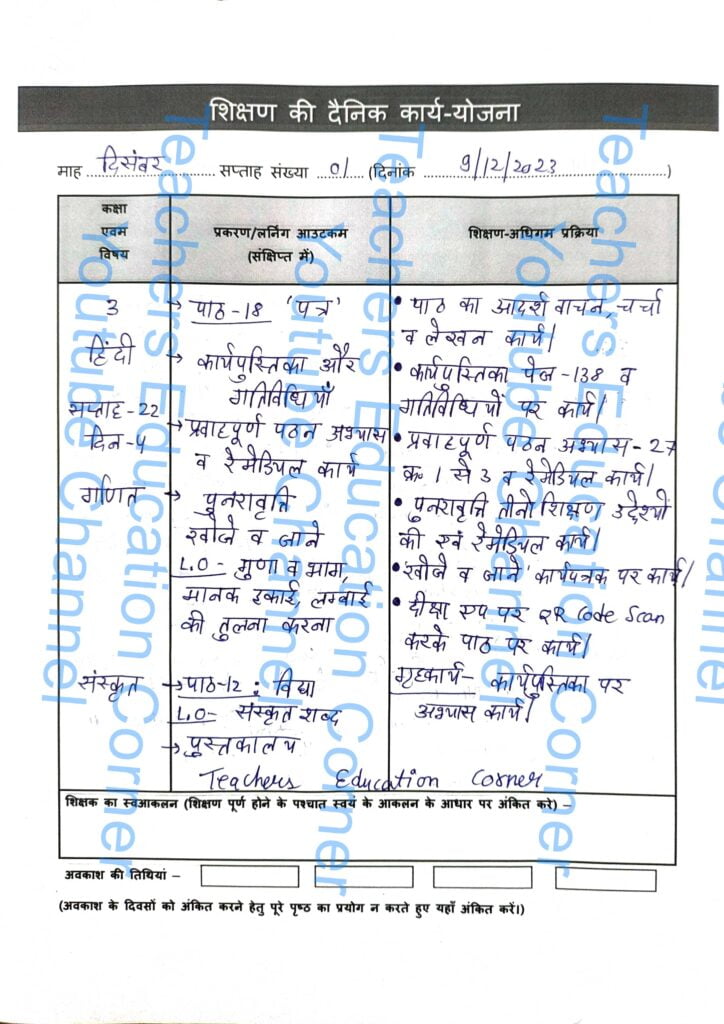 शिक्षण की दैनिक कार्य-योजना
माह दिसंबर सप्ताह संख्या 01 (दिनांक 9/12/2023)
कक्षा
एवम
विषय
प्रकरण/लर्निंग आउटकम
(संक्षिप्त में)
शिक्षण-अधिगम प्रक्रिया
3
हिंदी
सप्ताह-22
दिन-4
→ पाठ-18 'पत्र'
→ कार्यपुस्तिका और
गतिविधियाँ
→ प्रवाहपूर्ण पठन अभ्यास
व रेमेडियल कार्य
• पाठ का आदर्श वाचन, चर्चा
व लेखन कार्य।
• कार्यपुस्तिका पेज-138 व
गतिविधियों पर कार्य।
• प्रवाहपूर्ण पठन अभ्यास-27
क्र. 1 से 3 व रेमेडियल कार्य।
गणित
→ पुनरावृत्ति
खोजे व जाने
L.O- गुणा व भाग,
मानक इकाई, लम्बाई
की तुलना करना
• पुनरावृत्ति तीनो शिक्षण उद्देश्यों
की एवं रेमेडियल कार्य।
• 'खोजे व जाने' कार्यपत्रक पर कार्य।
• दीक्षा एप पर QR Code Scan
करके पाठ पर कार्य।
संस्कृत
→ पाठ-12 : विद्या
L.O- संस्कृत शब्द
→ पुस्तकालय
गृहकार्य- कार्यपुस्तिका पर
अभ्यास कार्य।
Teachers Education Corner
शिक्षक का स्वआकलन (शिक्षण पूर्ण होने के पश्चात स्वयं के आकलन के आधार पर अंकित करे) –
अवकाश की तिथियां –
(अवकाश के दिवसों को अंकित करने हेतु पूरे पृष्ठ का प्रयोग न करते हुए यहाँ अंकित करें।)
Teachers Education Corner
Youtube Channel
Teachers Education Corner
Youtube Channel
Teachers Education Corner
Youtube Channel